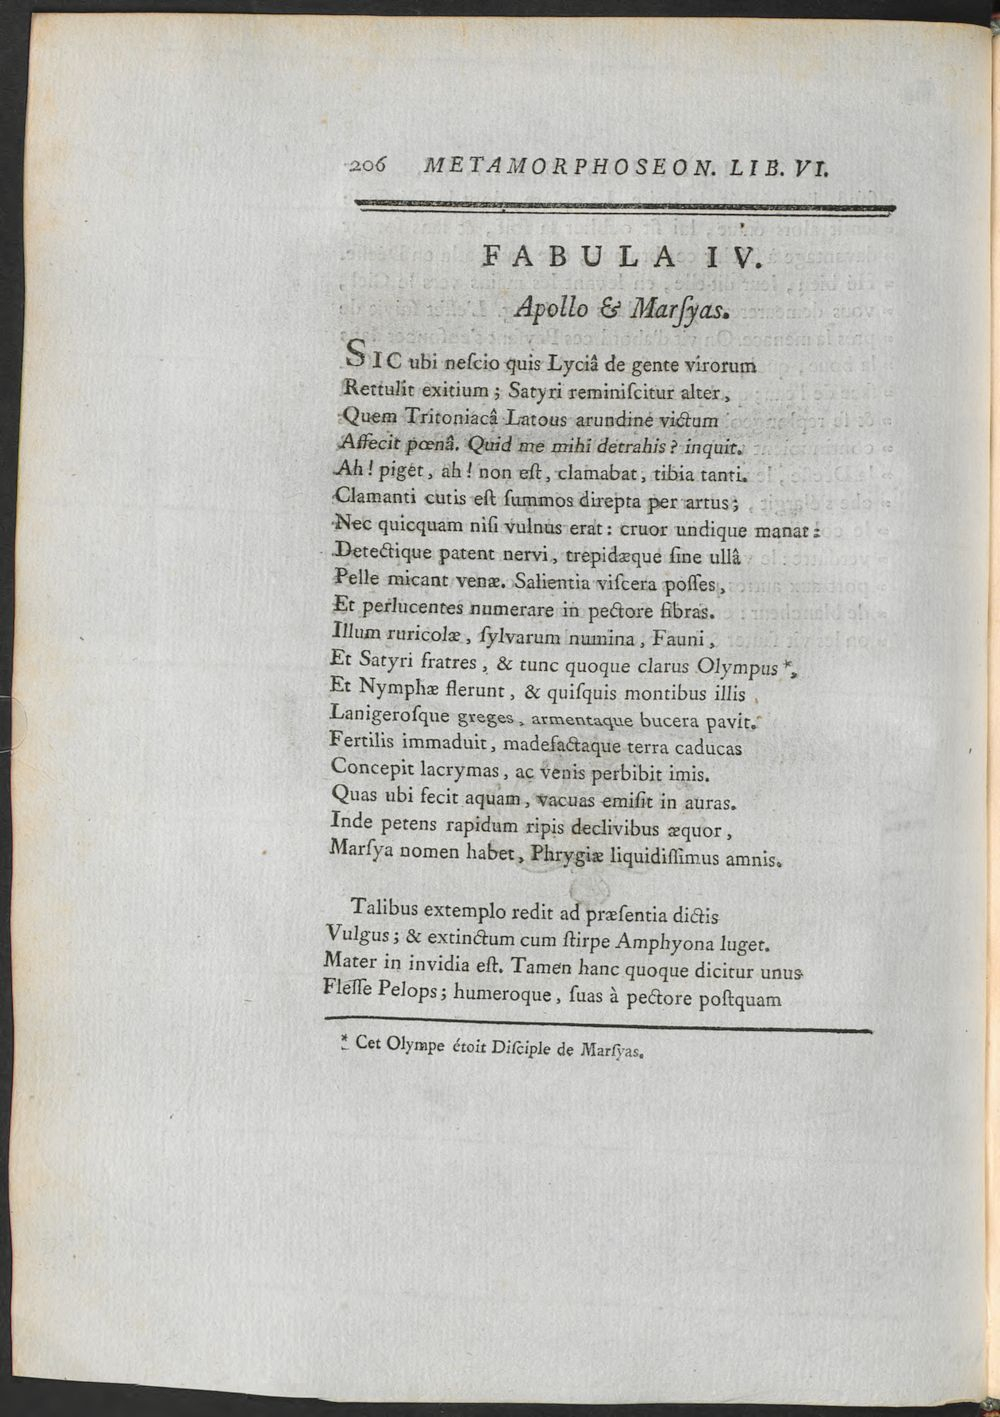 206 METAMORPHOSEON. LIB. VI.
FABULA IV.
Apollo & Marſyas.
SIC ubi neſcio quis Lyciâ de gente virorum
Rettulit exitium ; Satyri reminiſcitur alter,
Quem Tritoniacâ Latous arundine victum
Affecit pœnâ. Quid me mihi detrahis ? inquit.
Ah ! piget, ah ! non eſt, clamabat, tibia tanti.
Clamanti cutis eſt ſummos direpta per artus ;
Nec quicquam niſi vulnus erat : cruor undique manat :
Detectique patent nervi, trepidæque ſine ullâ
Pelle micant venæ. Salientia viſcera poſſes,
Et perlucentes numerare in pectore fibras.
Illum ruricolæ, ſylvarum numina, Fauni,
Et Satyri fratres, & tunc quoque clarus Olympus *,
Et Nymphæ flerunt, & quiſquis montibus illis
Lanigeroſque greges, armentaque bucera pavit.
Fertilis immaduit, madefactaque terra caducas
Concepit lacrymas, ac venis perbibit imis.
Quas ubi fecit aquam, vacuas emiſit in auras.
Inde petens rapidum ripis declivibus æquor,
Marſya nomen habet, Phrygiæ liquidiſſimus amnis.
Talibus extemplo redit ad præſentia dictis
Vulgus ; & extinctum cum ſtirpe Amphyona luget.
Mater in invidia eſt. Tamen hanc quoque dicitur unus
Fleſſe Pelops ; humeroque, ſuas à pectore poſtquam
* Cet Olympe étoit Diſciple de Marſyas.